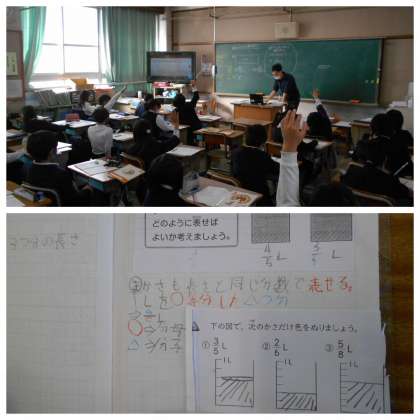 3つ分の長さ
どのように表せば
よいか考えましょう。
4/5 L
3/5 L
かさも長さと同じ分数で表せる。
Lを○等分した△つ分
△/○ L
○⇒分母
△⇒分子
下の図で、次のかさだけ色をぬりましょう。
① 3/5 L ② 2/6 L ③ 5/8 L
1L 1L 1L